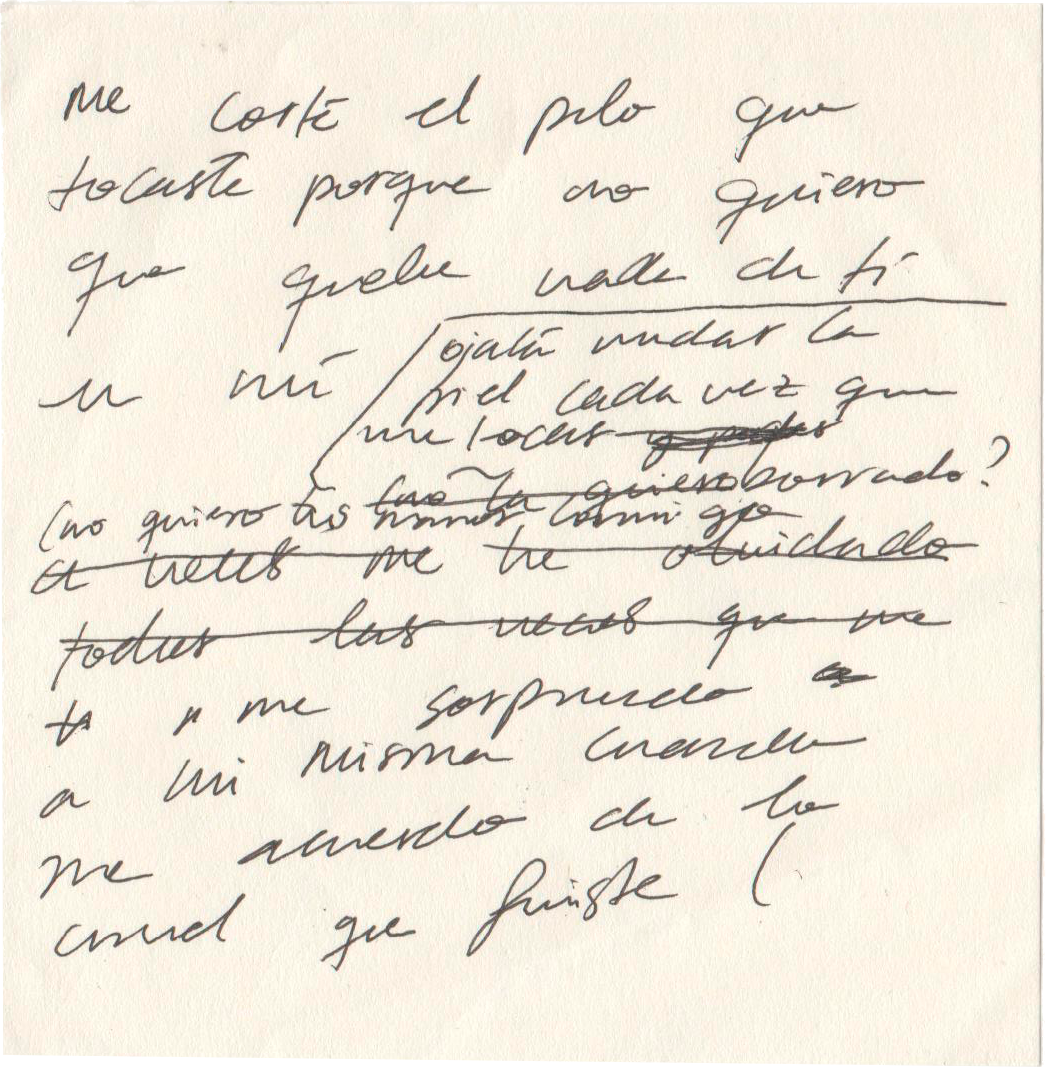 me corté el pelo que
tocaste porque no quiero
que quede nada de ti
en mí
ojalá mudar la
piel cada vez que
me tocas
(no la quiero borrado?
(no quiero tus manos conmigo
a veces me he olvidado
todas las veces que me
me sorprendo
a mi misma cuando
me acuerdo de lo
cruel que fuiste (